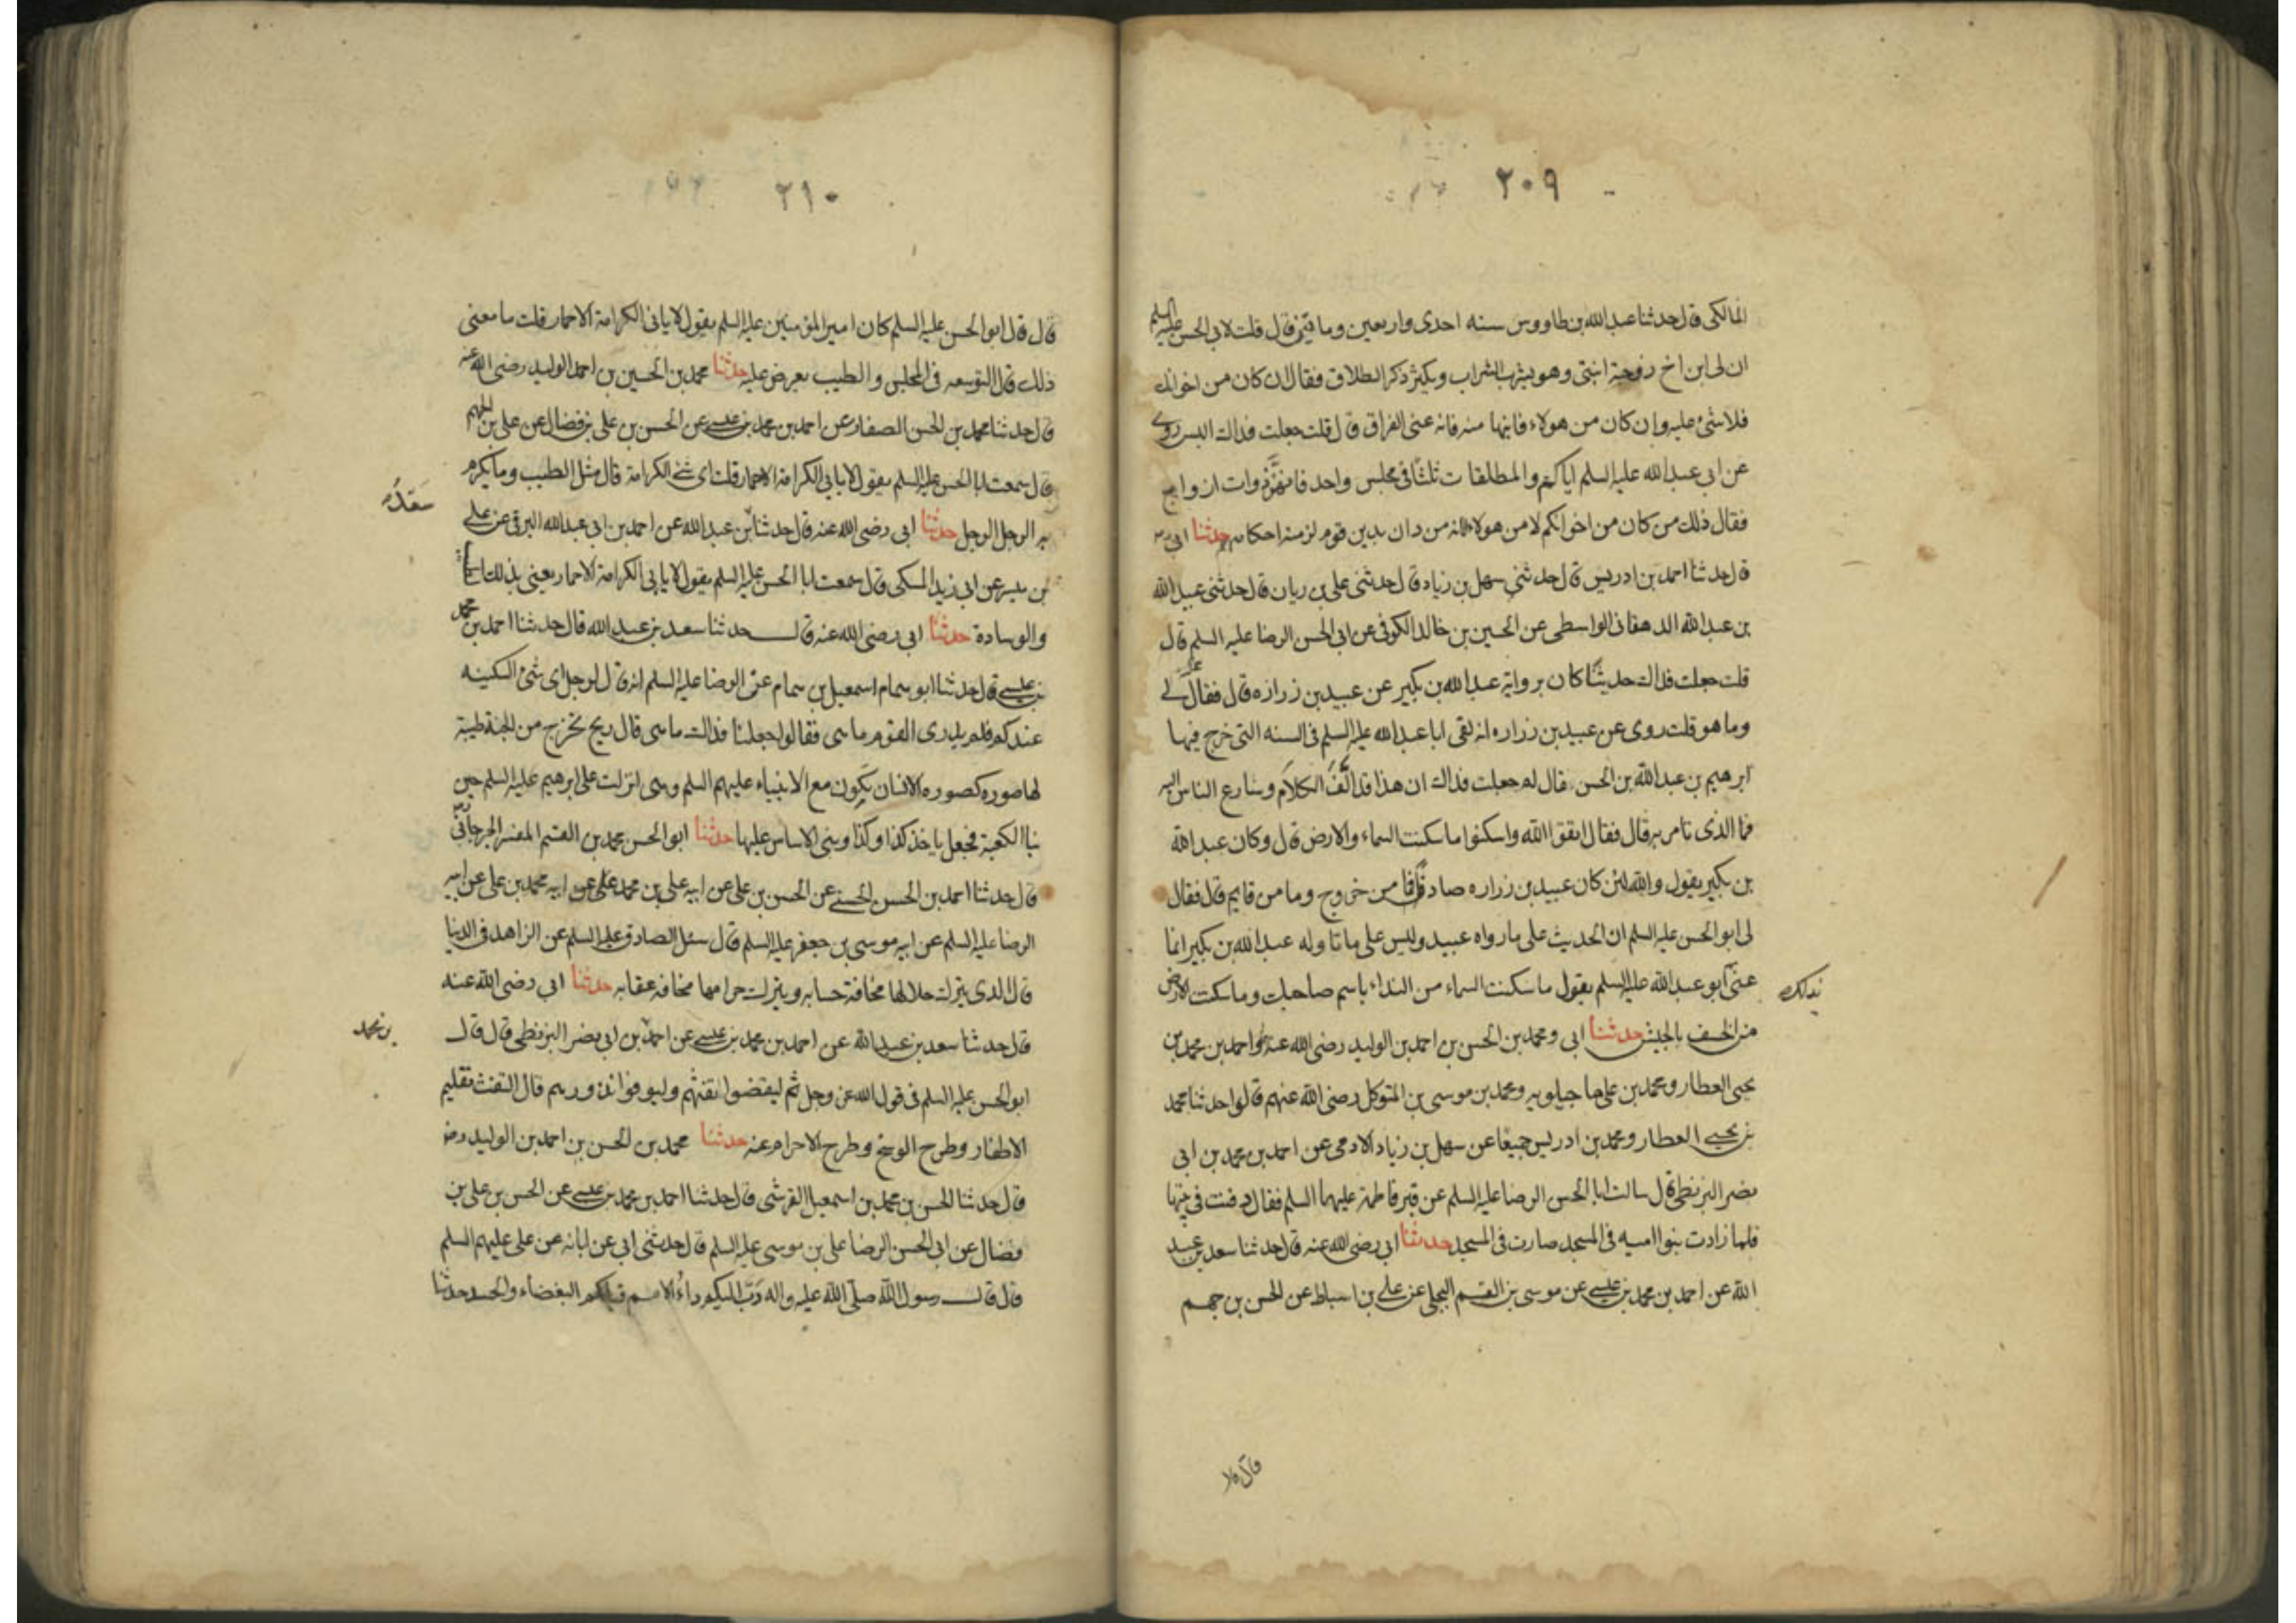 ٢٠٩
المالكى قال حدثنا عبد الله بن طاووس سنه احدى واربعين وماتين قال قلت لابى الحسن عليه السلم
ان لى ابن اخ زوجته ابنتى وهو يشرب الشراب ويكثر ذكر الطلاق فقال ان كان من اخوانك
فلا شئ عليه وان كان من هولاء فابنها منه فانه عنى الفراق قال قلت جعلت فداك اليس روى
عن ابى عبد الله عليه السلم اياكم والمطلقات ثلثا فى مجلس واحد فانهن ذوات ازواج
فقال ذلك من كان من اخوانكم لا من هولاء لانه من دان بدين قوم لزمته احكامهم حدثنا ابى
قال حدثنا احمد بن ادريس قال حدثنى سهل بن زياد قال حدثنى على بن ريان قال حدثنى عبيد الله
بن عبد الله الدهقانى الواسطى عن الحسين بن خالد الكوفى عن ابى الحسن الرضا عليه السلم قال
قلت جعلت فداك حديثا كان يروايه عبد الله بن بكير عن عبيد بن زراره قال فقال لى
وما هو قلت روى عن عبيد بن زراره انه لقى ابا عبد الله عليه السلم فى السنه التى خرج فيها
ابرهيم بن عبد الله بن الحسن فقال له جعلت فداك ان هذا قد الف الكلام وسارع الناس اليه
فما الذى تامر به قال فقال اتقوا الله واسكنوا ما سكنت السماء والارض قال وكان عبد الله
بن بكير يقول والله لئن كان عبيد بن زراره صادقا فما من خروج وما من قايم قال فقال
لى ابو الحسن عليه السلم ان الحديث على ما رواه عبيد وليس على ما تاوله عبد الله بن بكير انما
عنى ابو عبد الله عليه السلم بقول ما سكنت السماء من النداء باسم صاحبك وما سكنت الارض
بذلك
من الخسف بالجيش حدثنا ابى ومحمد بن الحسن بن احمد بن الوليد رضى الله عنه واحمد بن محمد بن
يحيى العطار ومحمد بن على ماجيلويه ومحمد بن موسى بن المتوكل رضى الله عنهم قالوا حدثنا محمد
بن يحيى العطار ومحمد بن ادريس جميعا عن سهل بن زياد الادمى عن احمد بن محمد بن ابى
نصر البزنطى قال سالت ابا الحسن الرضا عليه السلم عن قبر فاطمة عليهما السلم فقال دفنت فى بيتها
فلما زادت بنوا اميه فى المسجد صارت فى المسجد حدثنا ابى رضى الله عنه قال حدثنا سعد بن عبد
الله عن احمد بن محمد بن عيسى عن موسى بن القسم البجلى عن على بن اسباط عن الحسن بن جهم
قال قال
٢١٠
قال قال ابو الحسن عليه السلم كان امير المؤمنين عليه السلم يقول لا يابى الكرامة الا حمار قلت ما معنى
ذلك قال التوسعه فى المجلس والطيب يعرض عليه حدثنا محمد بن الحسين بن احمد الوليد رضى الله عنه
قال حدثنا محمد بن الحسن الصفار عن احمد بن محمد بن عيسى عن الحسن بن على بن فضال عن على بن الجهم
قال سمعت ابا الحسن عليه السلم يقول لا يابى الكرامة الا حمار قلت اى شئ الكرامة قال مثل الطيب وما يكرم
به الرجل الرجل حدثنا ابى رضى الله عنه قال حدثنا بن عبد الله عن احمد بن ابى عبد الله البرقى عن على
سعد
بن ميسر عن ابى زيد المكى قال سمعت ابا الحسن عليه السلم يقول لا يابى الكرامة الا حمار يعنى بذلك
والوسادة حدثنا ابى رضى الله عنه قال حدثنا سعد بن عبد الله قال حدثنا احمد بن محمد
بن عيسى قال حدثنا ابو همام اسمعيل بن همام عن الرضا عليه السلم انه قال لرجل اى شئ السكينه
عندكم فلم يدرى القوم ما هى فقالوا جعلنا فداك ما هى قال ريح تخرج من الجنة طيبة
لها صوره كصوره الانسان يكون مع الانبياء عليهم السلم وهى انزلت على ابرهيم عليه السلم حين
بنا الكعبة فجعل ياخذ كذا وكذا وبنى الاساس عليها حدثنا ابو الحسن محمد بن القسم المفسر الجرجانى
قال حدثنا احمد بن الحسن الحسنى عن الحسن بن على عن ابيه على بن محمد عن ابيه محمد بن على عن ابيه
الرضا عليه السلم عن ابيه موسى بن جعفر عليه السلم قال سئل الصادق عليه السلم عن الزاهد فى الدنيا
قال الذى يترك حلالها مخافة حسابه ويترك حرامها مخافه عقابه حدثنا ابى رضى الله عنه
قال حدثنا سعد بن عبد الله عن احمد بن محمد بن عيسى عن احمد بن ابى نصر البزنطى قال قال
بن محمد
ابو الحسن عليه السلم فى قول الله عز وجل ثم ليقضوا تفثهم وليوفوا نذورهم قال التفث تقليم
الاظفار وطرح الوسخ وطرح الاحرام عنه حدثنا محمد بن الحسن بن احمد بن الوليد رض
قال حدثنا الحسن بن محمد بن اسمعيل القرشى قال حدثنا احمد بن محمد بن عيسى عن الحسن بن على بن
فضال عن ابى الحسن الرضا على بن موسى عليه السلم قال حدثنى ابى عن ابائه عن على عليهم السلم
قال قال رسول الله صلى الله عليه واله دب اليكم داء الامم قبلكم البغضاء والحسد حدثنا